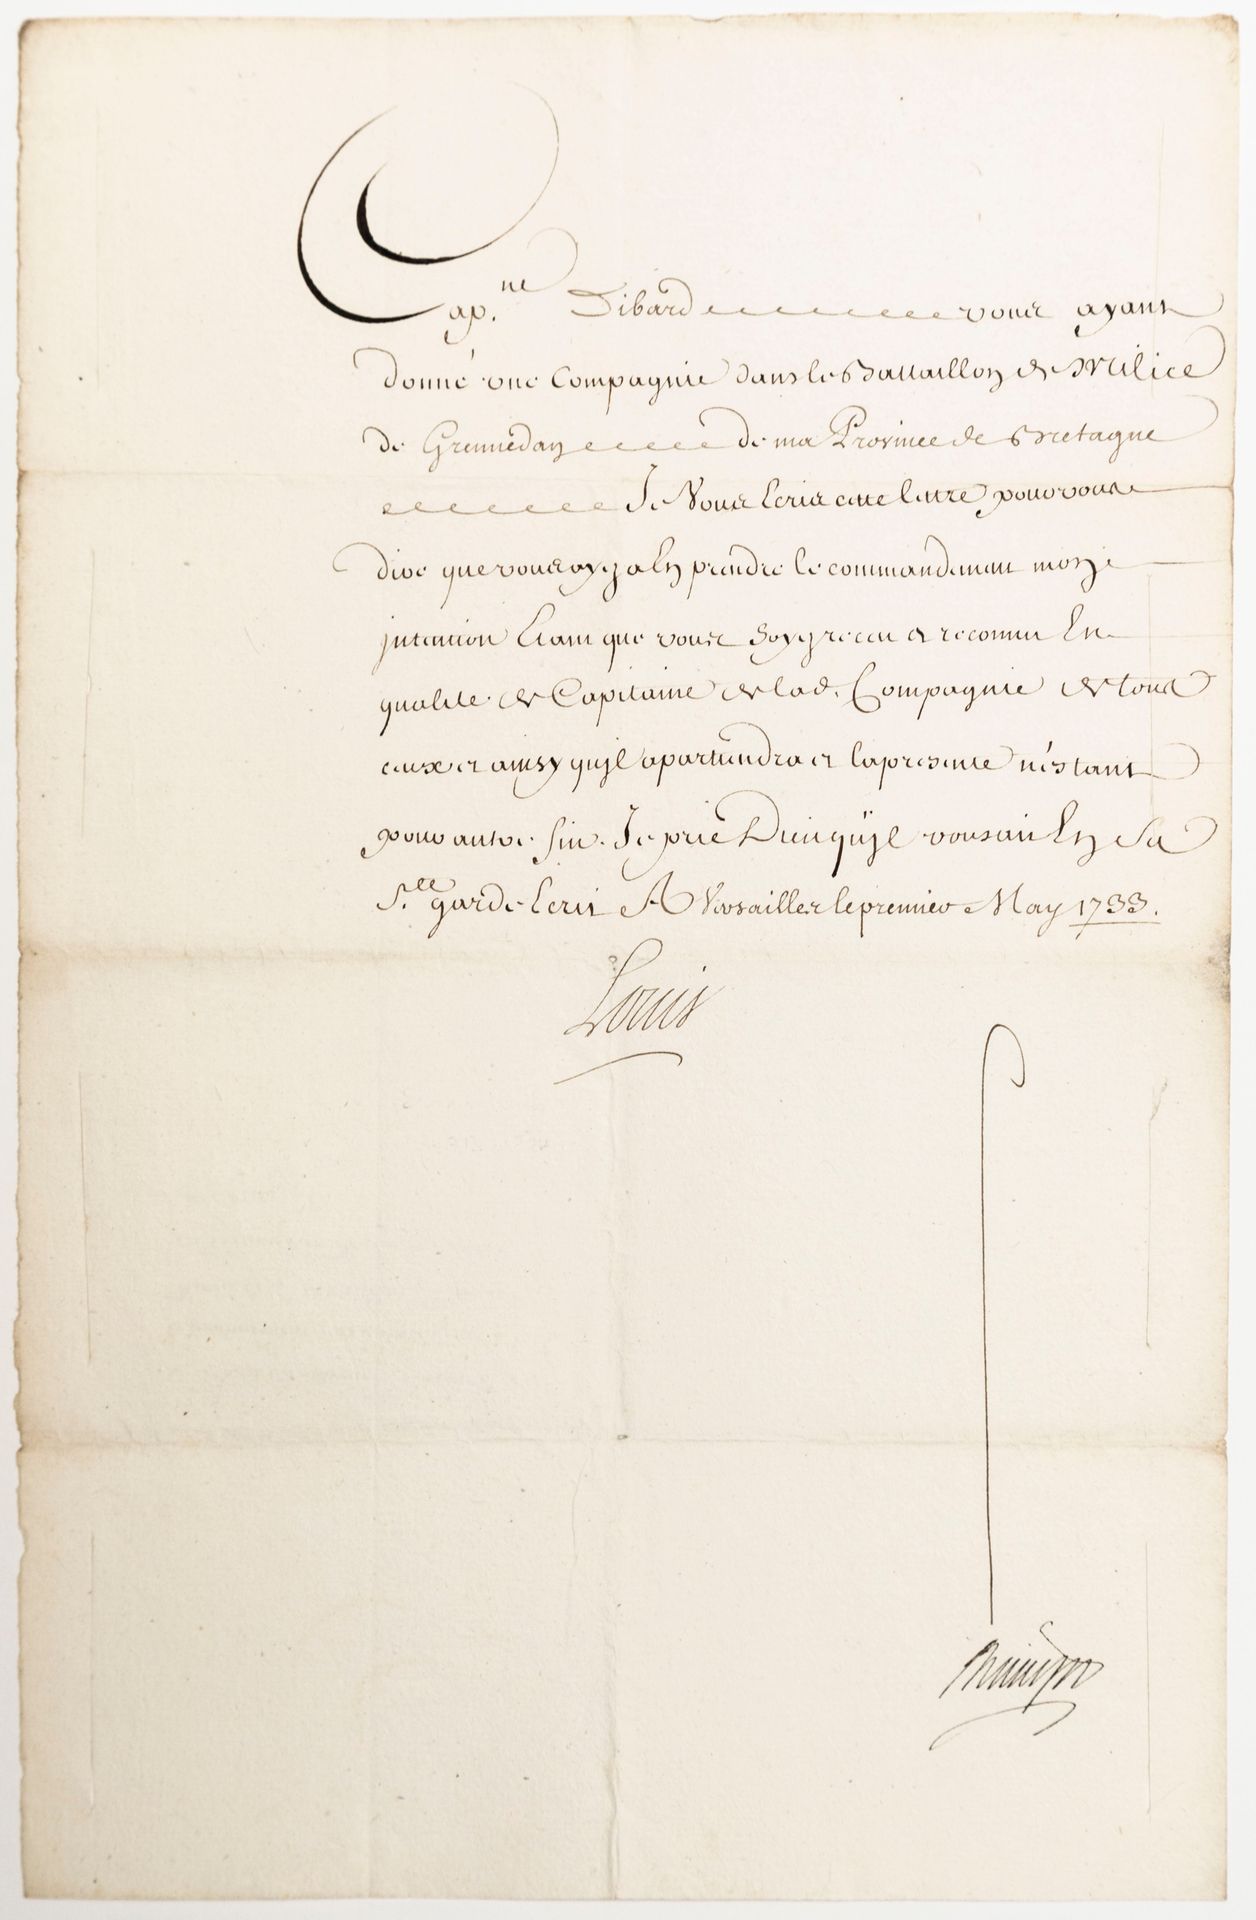 Cap.ne Dibard vous ayant
donné une Compagnie dans le Battaillon de Milice
de Grennedan de ma Province de Bretagne
Je Vous Ecris cette lettre pour vous
dire que vous ayez a En prendre le commandement mon
jntention Etant que vous soyez receu et reconnu En
qualité de Capitaine de lad. Compagnie de tous
ceux et ainsy qu'jl apartiendra et la presente n'estant
pour autre fin. Je prie Dieu qu'jl vous ait En Sa
S.te garde Ecrit A Versailles le premier May 1733.
Louis